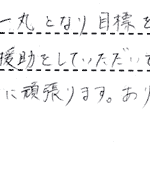 一丸となり目標を
援助をしていただいて
に頑張ります。あり